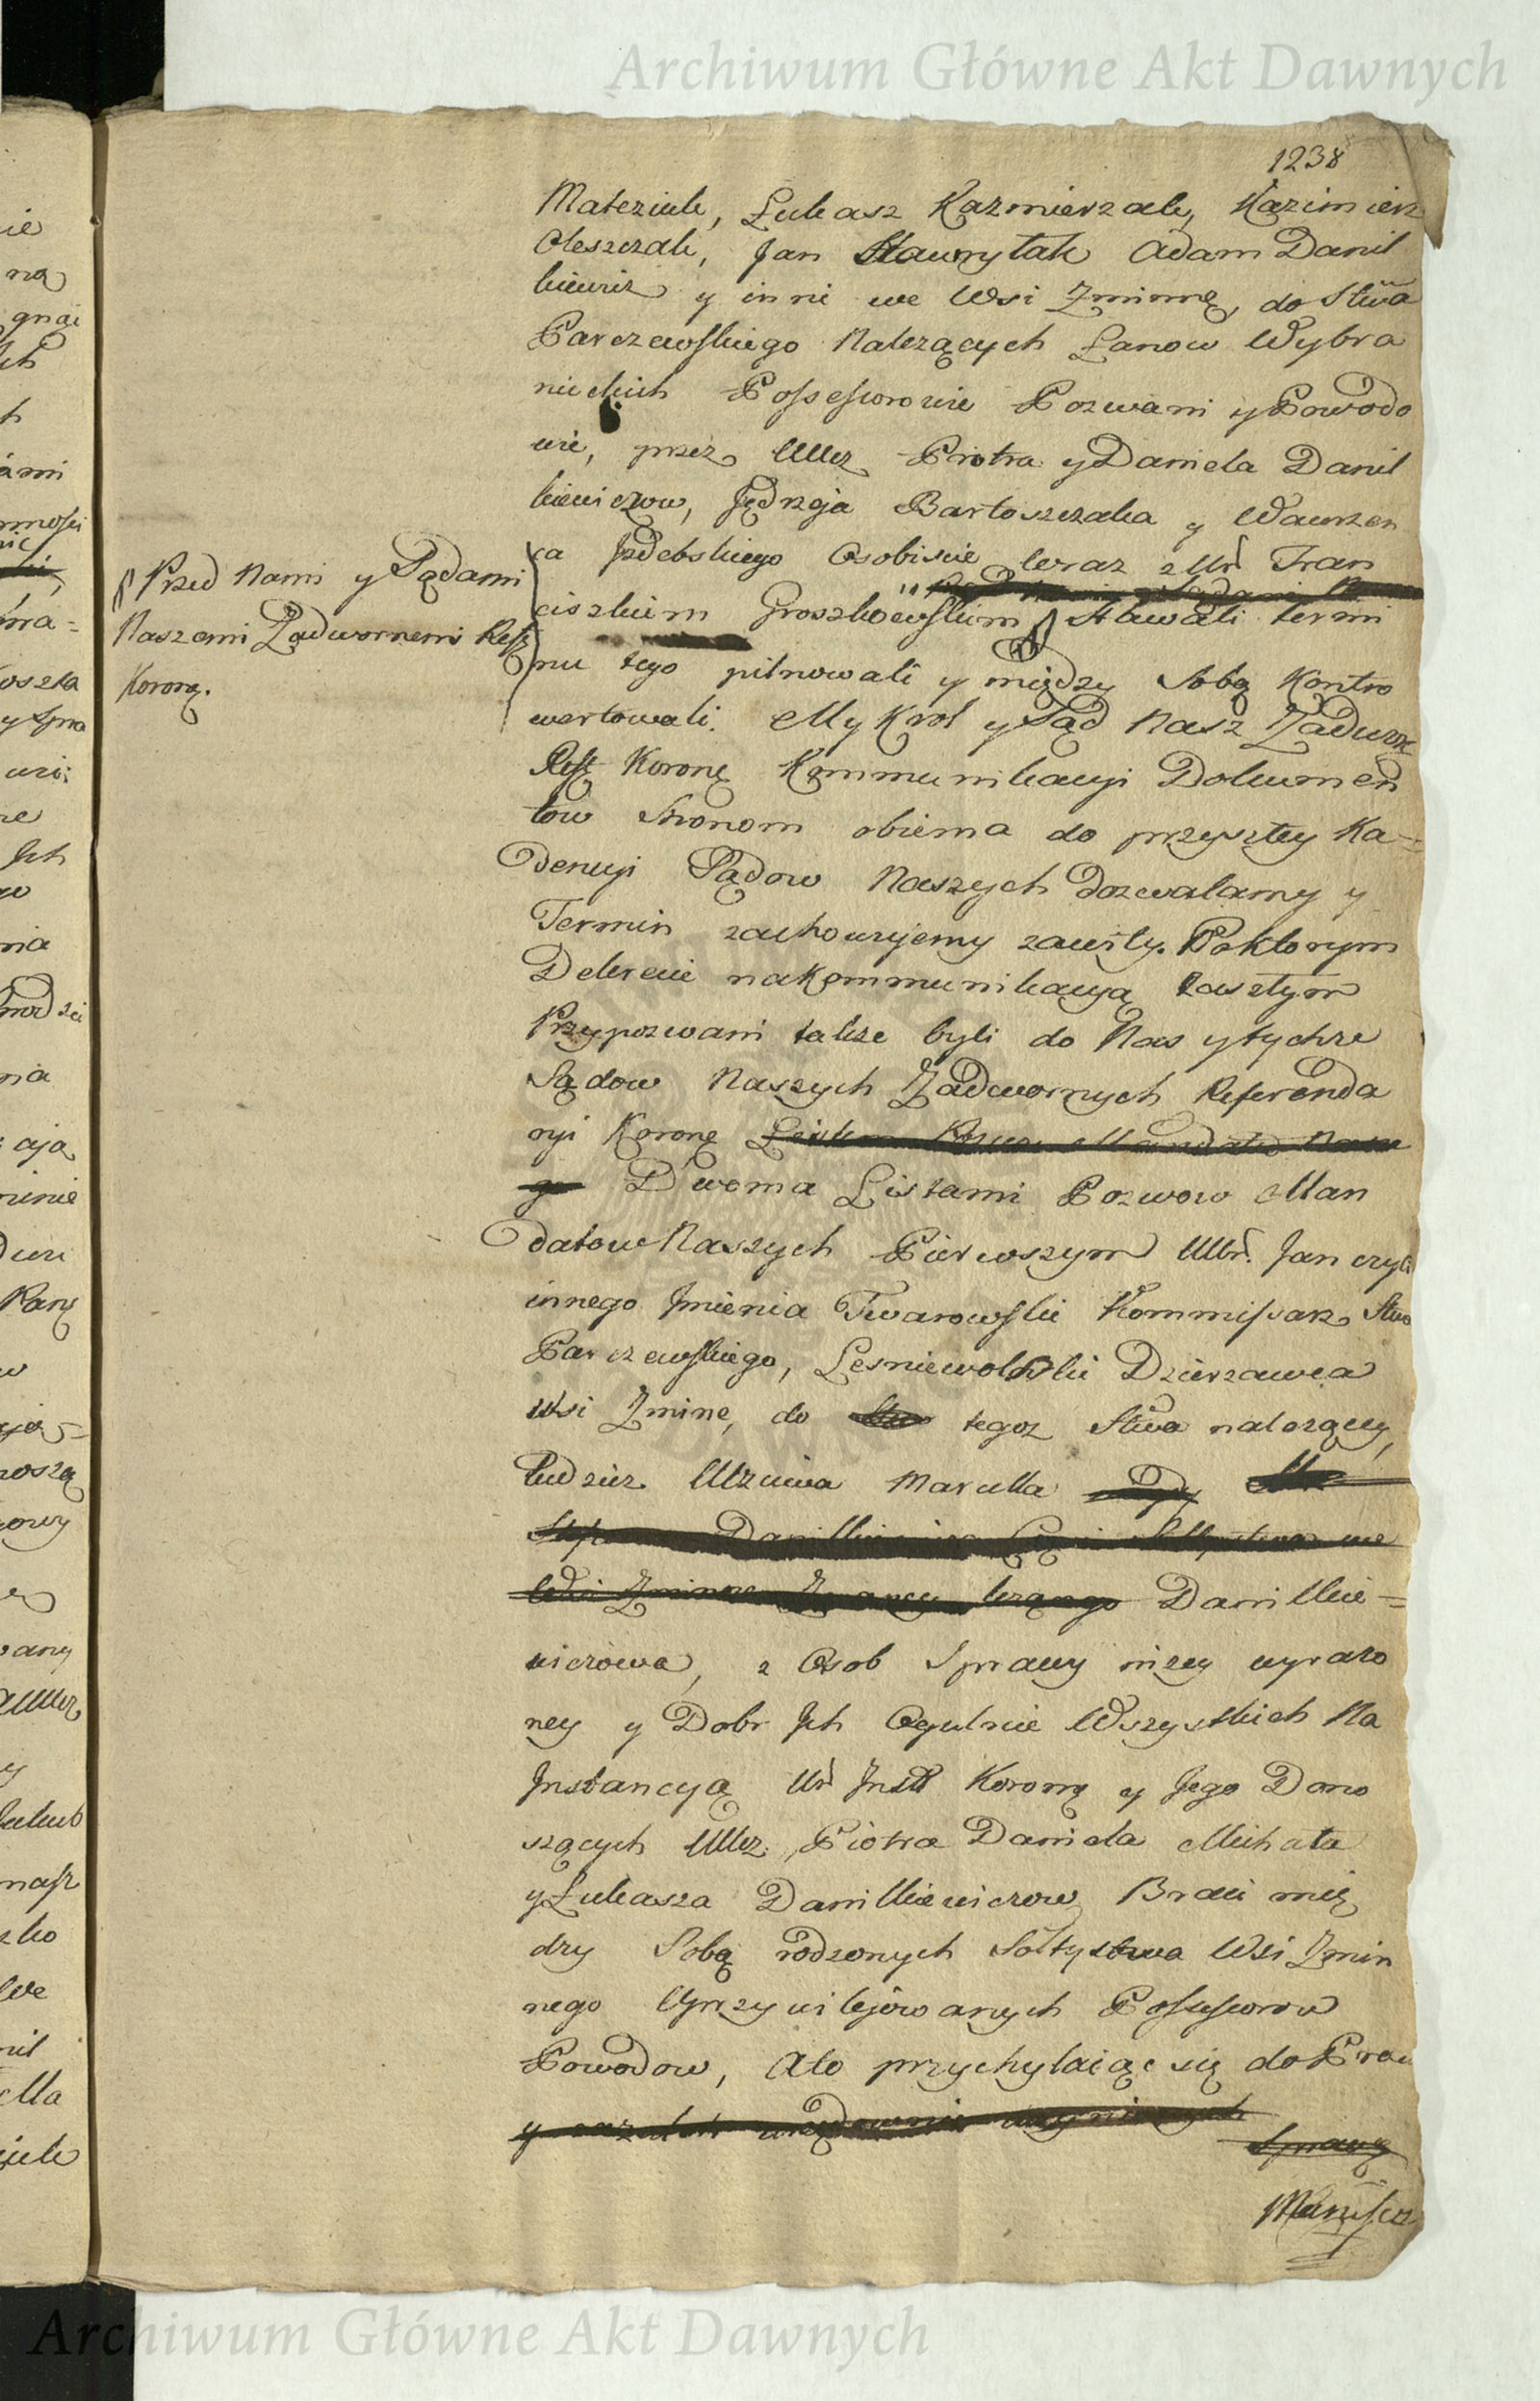 Archiwum Główne Akt Dawnych
1238
Mateziuk, Lukasz Kazmierzak, Kazimierz
Oleszczak, Jan Hawrylak Adam Danil
kiewicz y inni we Wsi Zminnę, do Stwa
Parczewskiego Nalezących Łanow Wybra
nieckich Possessorowie Pozwani y Powodo
wie, przez UUcz Piotra y Daniela Danil
kiewiczow, Jędrzeja Bartoszczaka y Wawrzen
ca Izdebskiego Osobiscie teraz z Ur Fran
ciszkiem Groszkowskim Stawali termi
Przed Nami y Sądami
Naszemi Zadwornemi Refą
Koroną.
nu tego pilnowali y między Sobą Kontro
wertowali. My Krol y Sąd Nasz Zadwor
Refę Koronę Kommunikacyi Dokumen
tow Stronom obiema do przyszłey Ka=
dencyi Sądow Naszych dozwalamy y
Termin zachowujemy zawiły. Poktorym
Dekrecie nakommunikacyą zaszłym
Przypozwani także byli do Nas ytychze
Sądow Naszych Zadwornych Referenda
ryi Koronę
Dwoma Listami Pozwow Man
datow Naszych Pierwszym UUr. Jan czyli
innego Imienia Twarowski Kommissarz Stwa
Parczewskiego, Lesniewolski Dzierzawca
Wsi Zminę, do tegoz Stwa nalezącey,
tudziez Uczciwa Marcella
Danilkie=
wiczowa, z Osob Sprawy nizey wyrazo
ney y Dobr Ich Ogulnie Wszystkich Na
Instancyą Ur Inst Koronę y Jego Dono
szących UUcz. Piotra Daniela Michała
y Łukasza Danilkiewiczow Braci mię
dzy Sobą rodzonych Sołtystwa Wsi Zmin
nego Uprzywilejowanych Possessorow
Powodow, Ato przychylaiąc się do Praw
Sprawę
Archiwum Główne Akt Dawnych